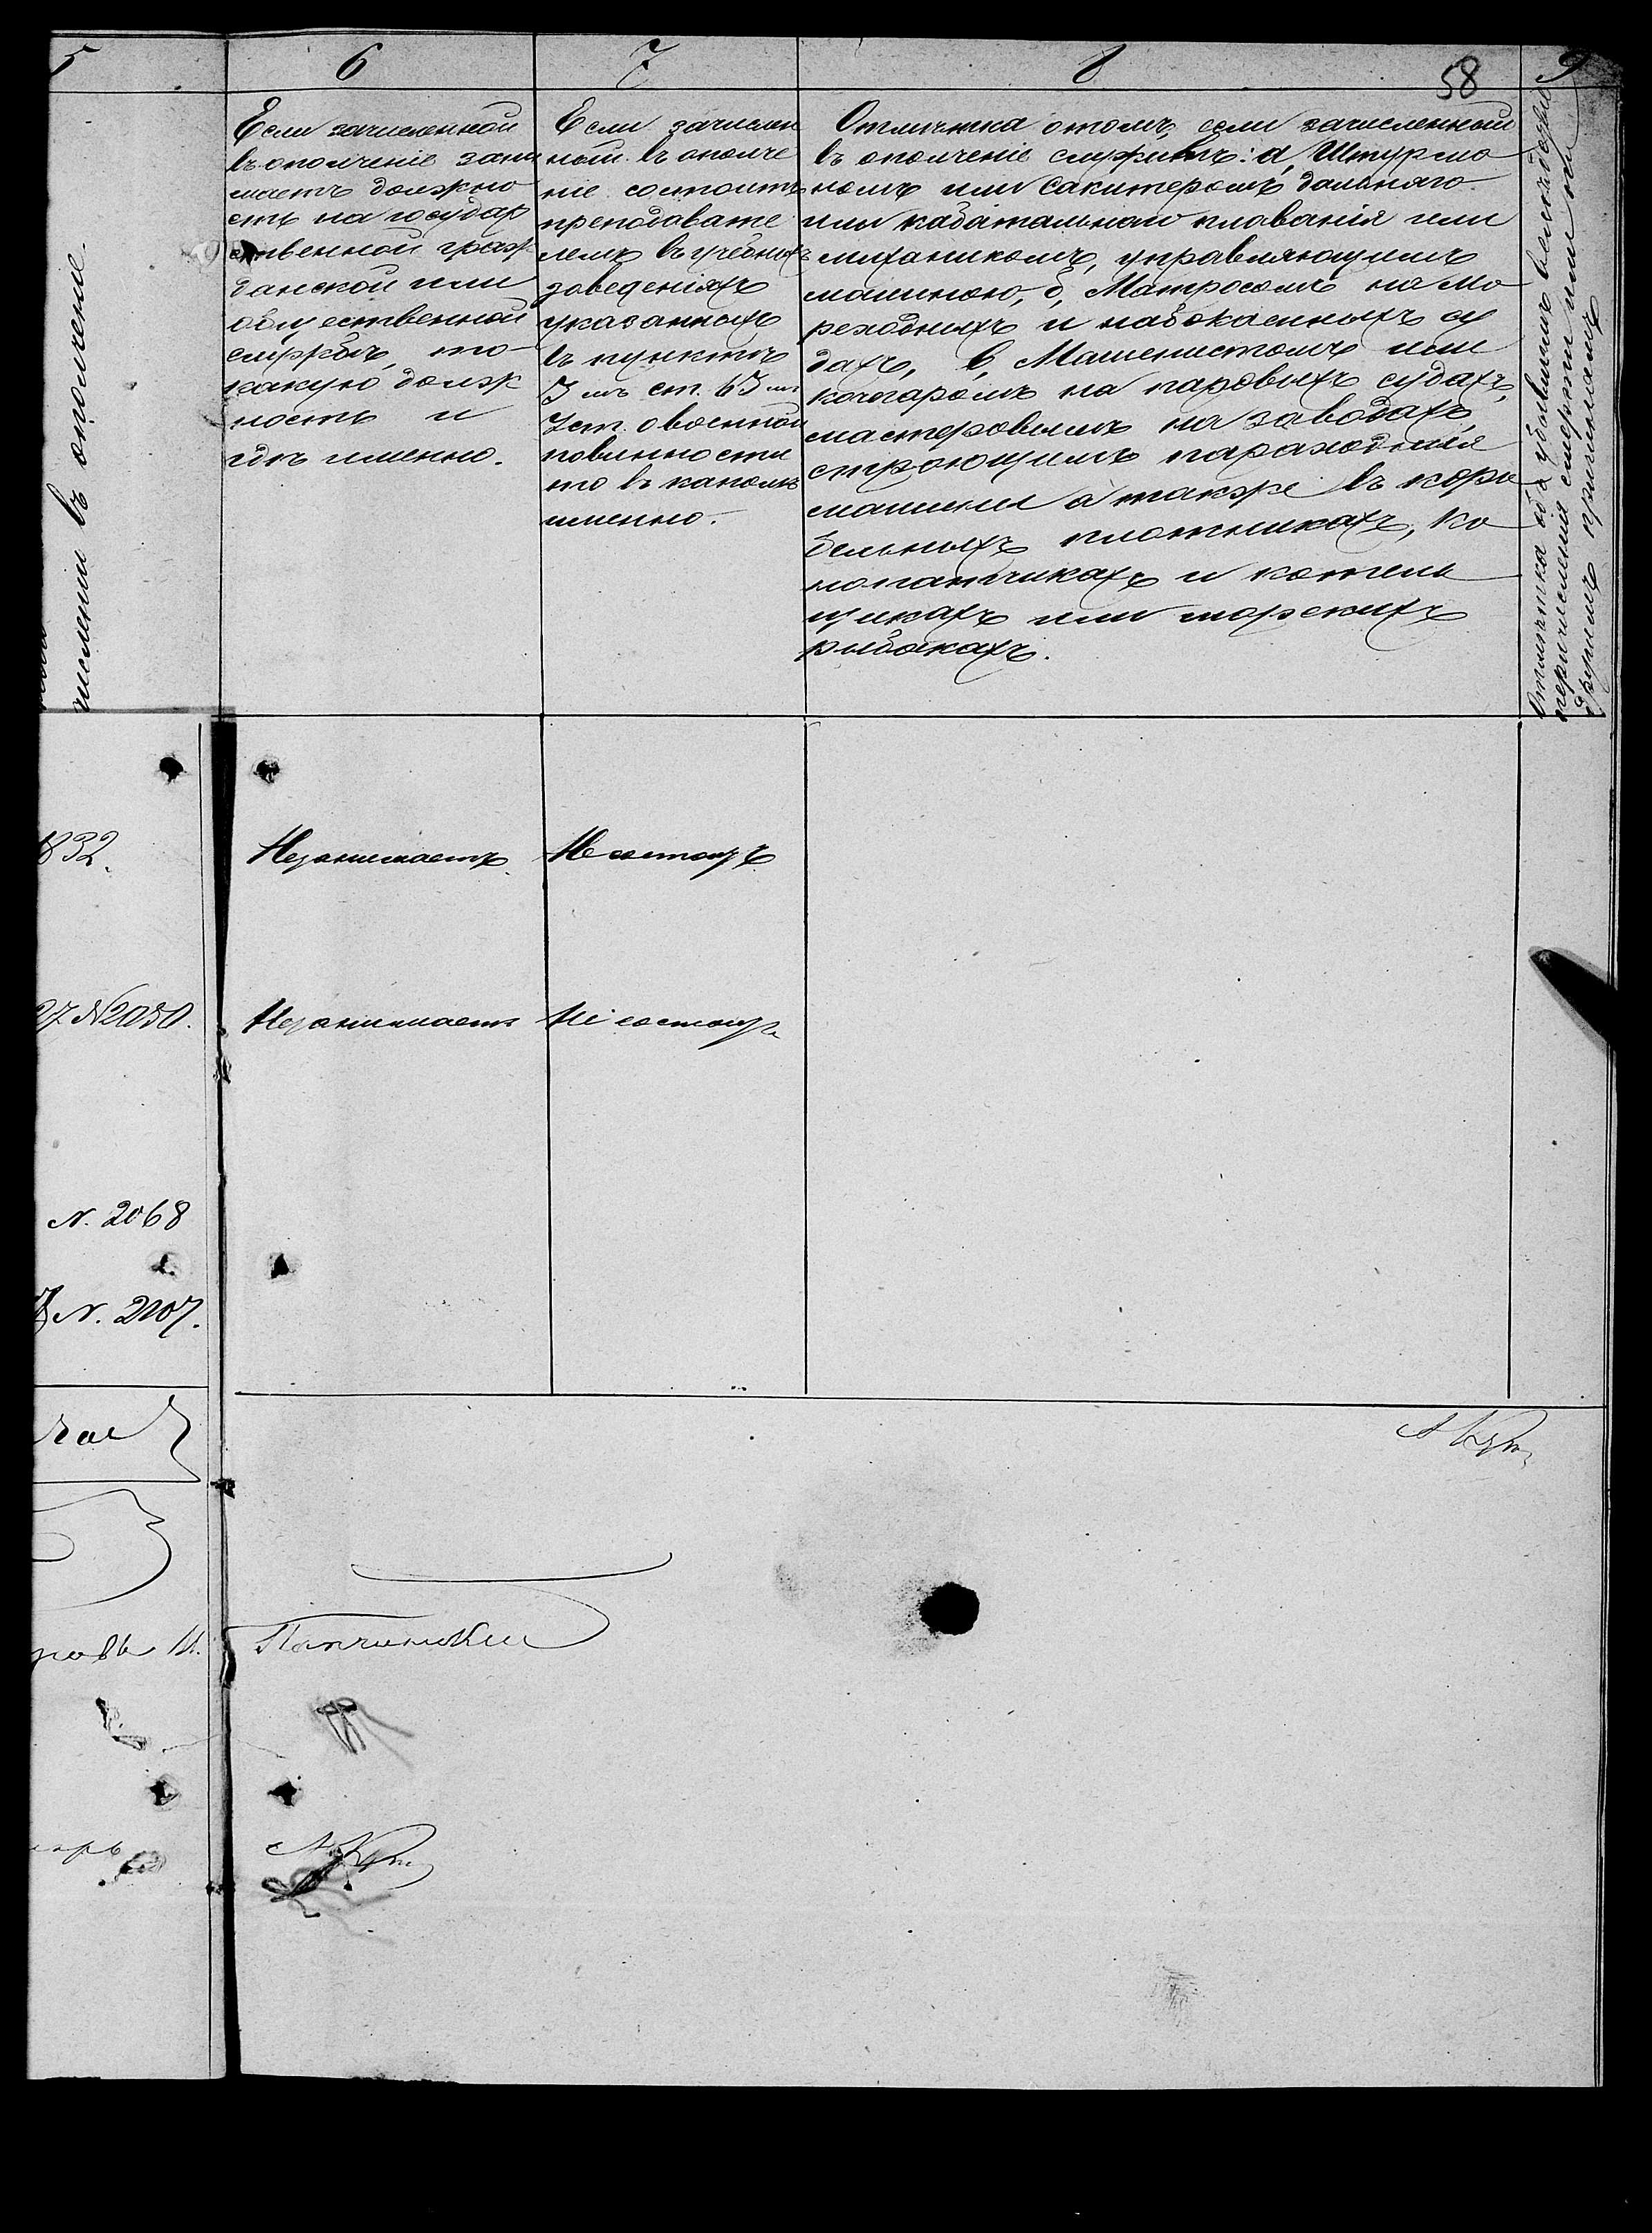 5 6 7 8 58 9
числении въ ополчение.
Если зачисленной
въ ополченіе зани
маетъ должно
сть на государ
ственной граж
данской или
общественной
службѣ, то
какую долж
ность и
гдѣ именно.
Если зачислен
ный въ ополче
ніе состоитъ
преподавате
лемъ въ учебныхъ
заведеніяхъ
указанныхъ
въ пунктѣ
3 мъ ст. 63 
Уст. о воинской
повинности
то въ какомъ
именно.
Отмѣтка отомъ, если зачисленный
въ ополченіе служитъ: а, Штурма
номъ или Шкиперомъ дальняго
или каботажнаго плаванія или
механикомъ, управляющимъ
машиною, б, Матросомъ на мо
реходныхъ и кабокасныхъ су
дахъ, в, Машенистомъ или
кочегаромъ на паровыхъ судахъ,
мастеровымъ на заводахъ,
строющимъ параходныя
машины а также въ кора
бельныхъ плотникахъ, ко
нопатчикахъ и котель
щикахъ или морскихъ
рыбакахъ.
Отмѣтка объ убывшихъ вслѣдствіе
перечисленія смерти или по
другимъ причинамъ
832. Незанимаетъ Не состоитъ
27 N2050. Незанимаетъ Не состоитъ
N. 2068
N. 2107.